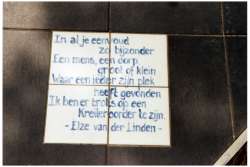 In al je eenvoud
zo bijzonder
Een mens, een dorp
groot of klein
Waar een ieder zijn plek
heeft gevonden
Ik ben er trots op een
Kreileroorder te zijn.
- Elze van der Linden -